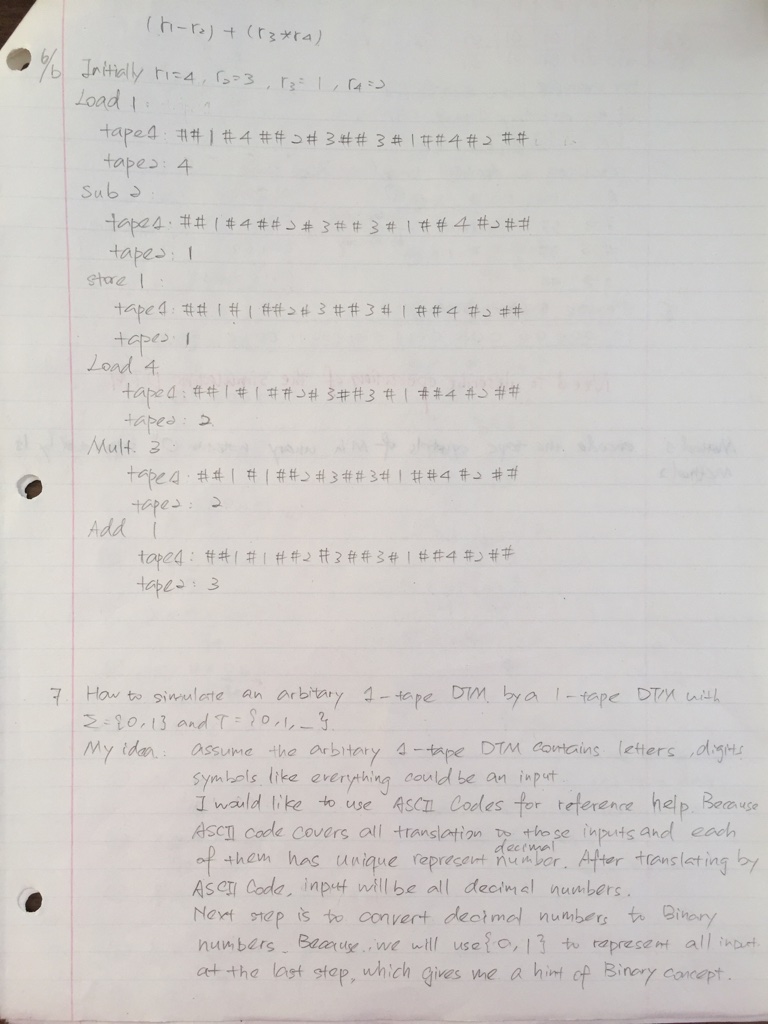 (r1-r2) + (r3*r4)
6/6 Initially r1=4, r2=3, r3=1, r4=2
Load 1
tape1: ##1#4##2#3##3#1##4#2##
tape2: 4
Sub 2
tape1: ##1#4##2#3##3#1##4#2##
tape2: 1
store 1
tape1: ##1#1##2#3##3#1##4#2##
tape2: 1
Load 4
tape1: ##1#1##2#3##3#1##4#2##
tape2: 2
Mult. 3
tape1: ##1#1##2#3##3#1##4#2##
tape2: 2
Add 1
tape1: ##1#1##2#3##3#1##4#2##
tape2: 3
7. How to simulate an arbitary 1-tape DTM by a 1-tape DTM with
Σ={0,1} and T={0,1,_}.
My idea: assume the arbitary 1-tape DTM contains letters, digits
symbols like everything could be an input.
I would like to use ASCII Codes for reference help. Because
ASCII code covers all translation to those inputs and each
of them has unique represent decimal number. After translating by
ASCII Code, input will be all decimal numbers.
Next step is to convert decimal numbers to Binary
numbers. Because we will use {0,1} to represent all input
at the last step, which gives me a hint of Binary concept.